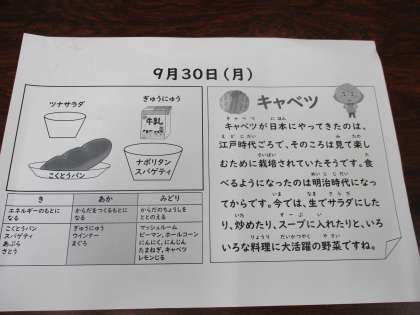 9月30日(月)
ツナサラダ
ぎゅうにゅう
牛乳
こくとうパン
ナポリタン
スパゲティ
き
あか
みどり
エネルギーのもとに
なる
からだをつくるもとに
なる
からだのちょうしを
ととのえる
こくとうパン
スパゲティ
あぶら
さとう
ぎゅうにゅう
ウインナー
まぐろ
マッシュルーム
ピーマン、ホールコーン
にんにく、にんじん
たまねぎ、キャベツ
レモンじる
キャベツ
キャベツが日本にやってきたのは、
江戸時代ごろで、そのころは見て楽し
むために栽培されていたそうです。食
べるようになったのは明治時代になっ
てからです。今では、生でサラダにした
り、炒めたり、スープに入れたりと、いろ
いろな料理に大活躍の野菜ですね。